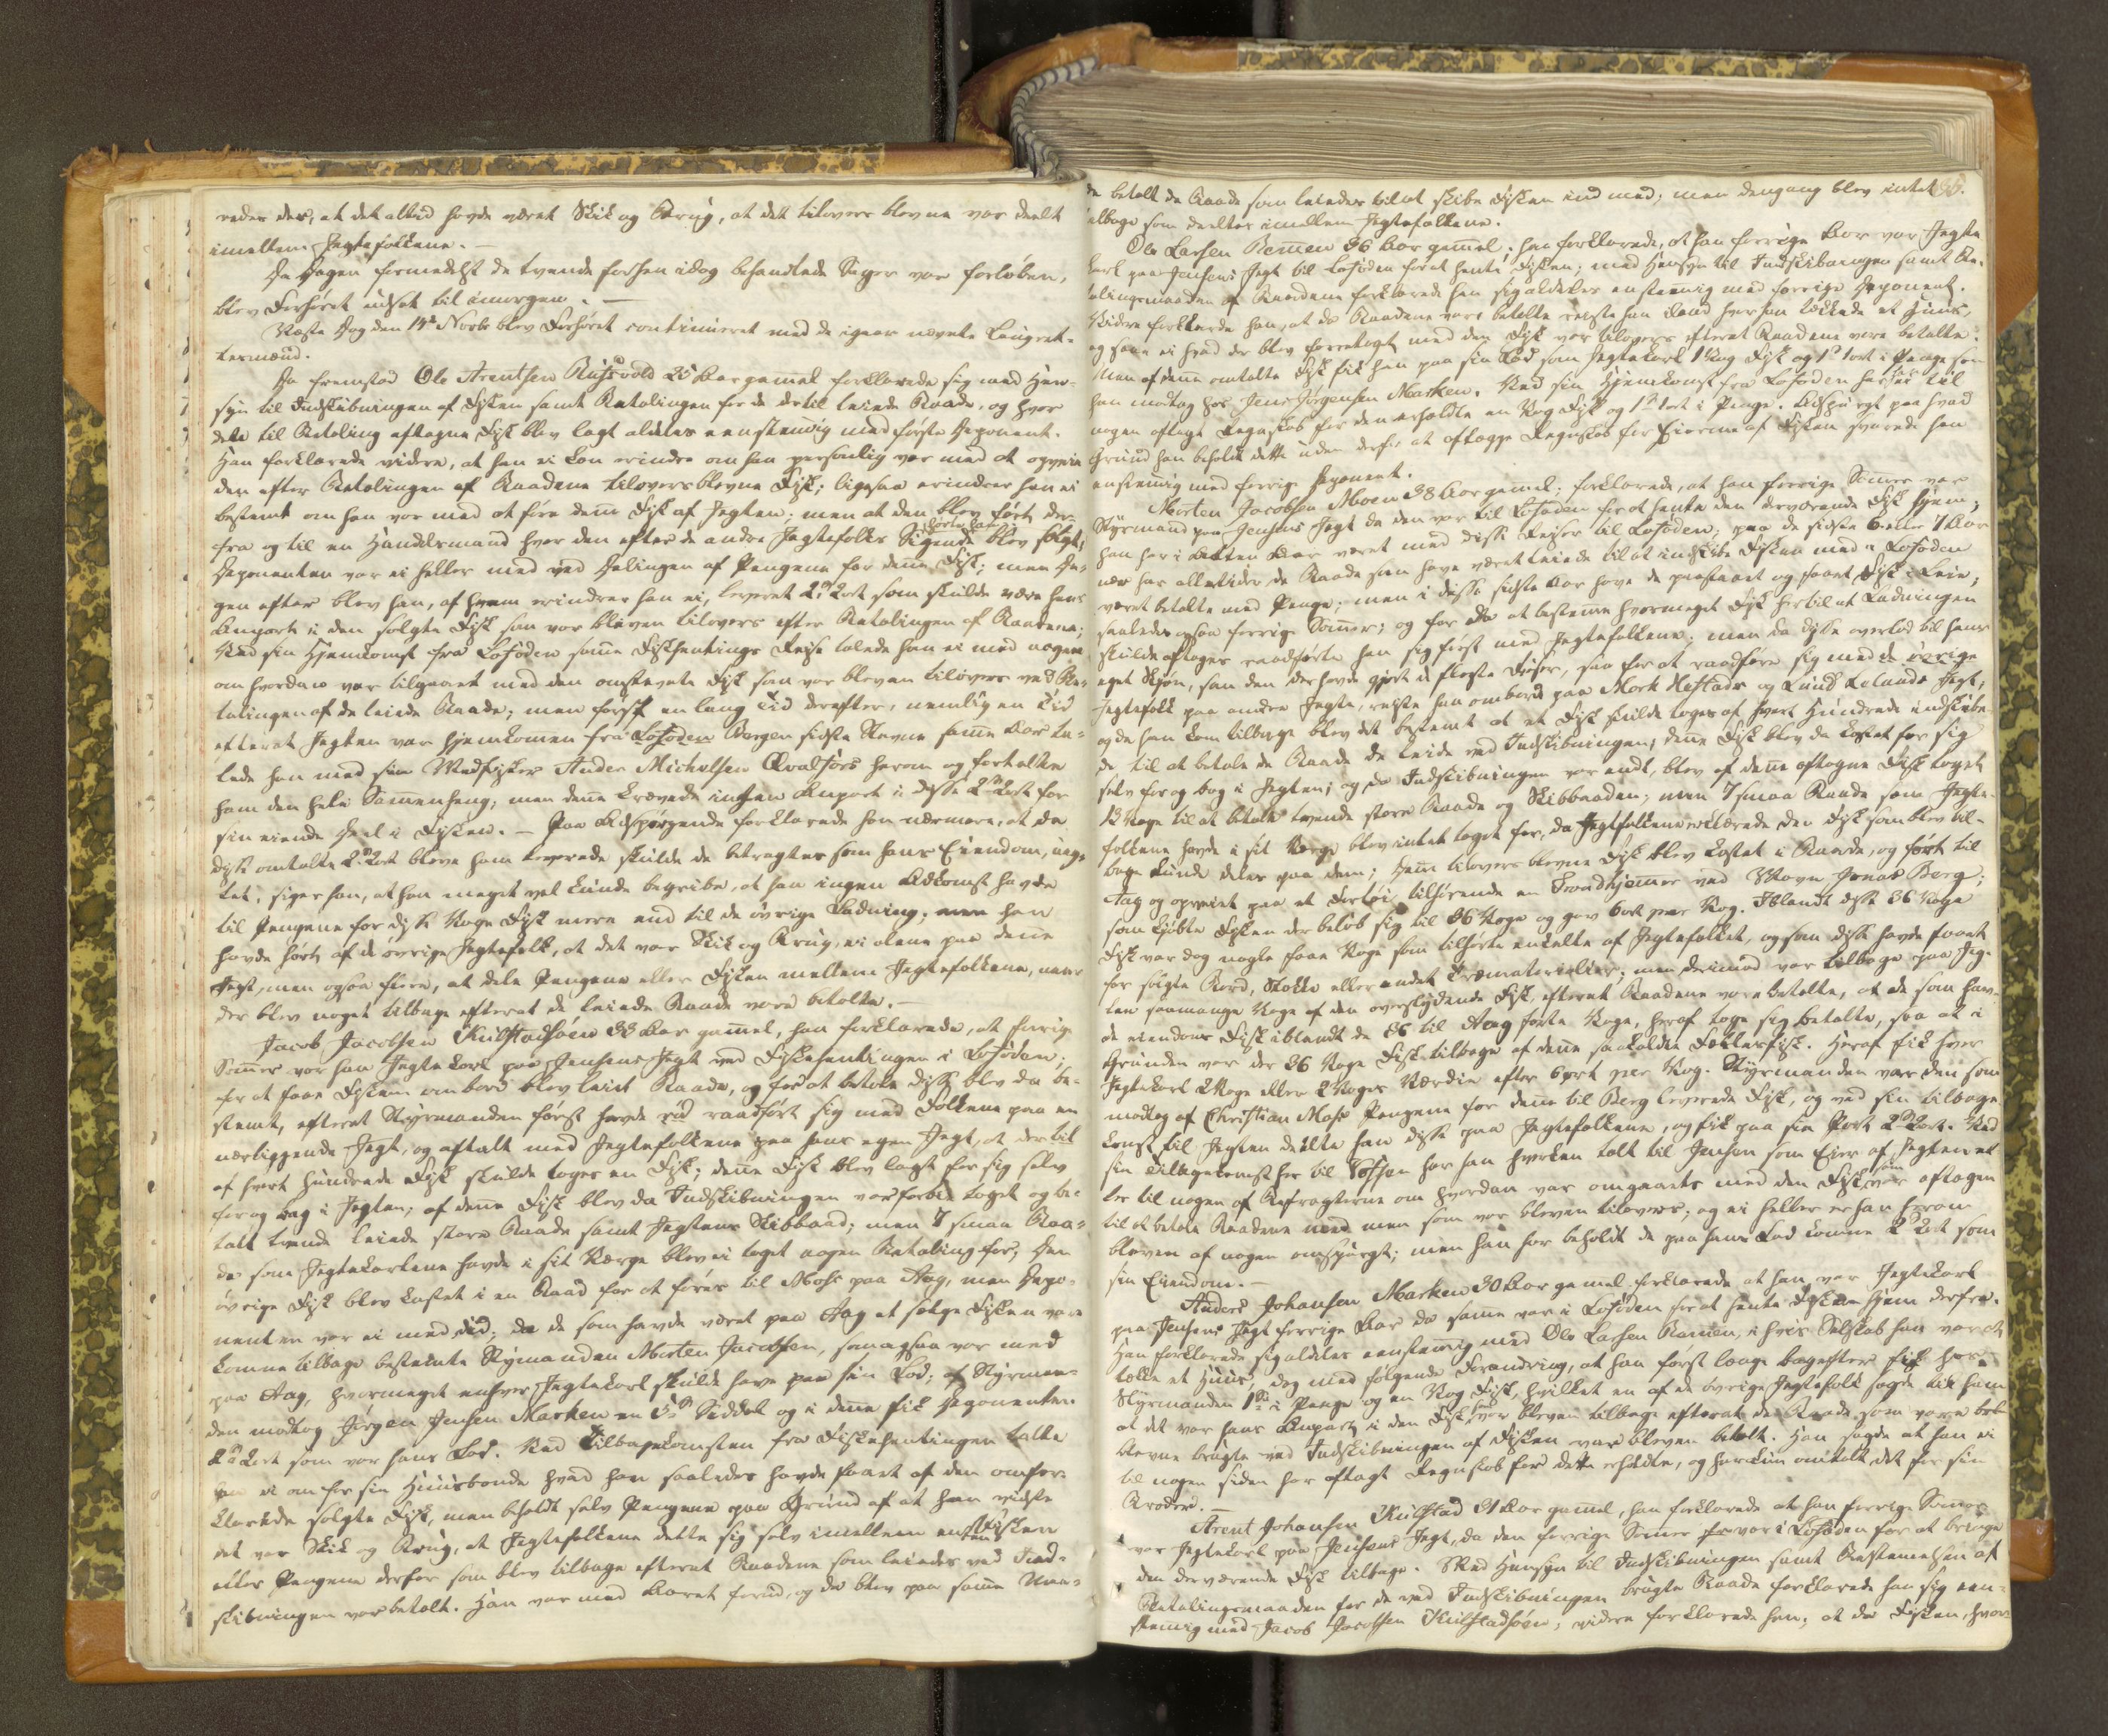 reder der, at det altid havde været Skik og Brug, at det tilovers blevne var deelt
imellem Jegtefolkene. —
Da Dagen formedelst de tvende forhen idag behandlede Sager var forløben,
blev Forhøret udsat til imorgen. —
Næste Dag den 14de Novbr blev Forhøret continueret med de igaar nævnte Laugret-
tesmænd.
Da fremstod Ole Arentsen 25 Aar gammel forklarede sig med Hen-
syn til Indskibningen af Fisken samt Betalingen for de dertil leiede Baade, og hvor
dele til Betaling aftagne Fisk blev lagt aldeles eenstemig med første Deponent.
Han forklarede videre, at han ei kan erindre om han personlig var med at opveie
den efter Betalingen af Baadene tiloversblevne Fisk; ligesaa erindrer han ei
bestemt om han var med at føre denne Fisk af Jegten; men at den blev ført der-
fra og til en Handelsmand hvor den efter de andre Jegtefolks Sigende blev solgt;
Deponenten var ei heller med ved Delingen af Pengene for denne Fisk; men Da-
gen efter blev han, af hvem erindrer han ei, leveret 2 Ort som skulde være hans
Anpart i den solgte Fisk som var bleven tilovers efter Betalingen af Baadene;
Ved sin Hjemkomst fra Lofoden samme Fiskhentings Reise talede han ei med nogen
om hvordan var tilgaaet med den omspurgte Fisk som var bleven tilovers ved Be-
talingen af de leiede Baade; men først en lang Tid derefter, nemlig en Tid
efterat Jegten var hjemkommen fra Lofoden Bergen sidste Stevne samme Aar ta-
lede han med sin Medfisker Anders Michelsen Qvalfors herom og fortalte
ham den hele Sammenheng; men denne krævede ingen Anpart i disse 2 Ort for
sin eiende Deel i Fisken. — Paa Adspørgende forklarede han nærmere, at da
disse omtalte 2 Ort bleve ham leverede skulde de betragtes som hans Eiendom, uag-
tet, siger han, at han meget vel kunde begribe, at han ingen Adkomst havde
til Pengene for disse Voge Fisk mere end til de øvrige Ladning; men han
havde hørt af de øvrige Jegtefolk, at det var Skik og Brug, ei alene paa denne
Jegt, men ogsaa flere, at dele Pengene eller Fisken mellem Jegtefolkene, naar
der blev noget tilbage efterat de leiede Baade vare betalte. —
Jacob Jacobsen Kulstadsøen 33 Aar gammel, han forklarede, at forrige
Sommer var han Jegtekarl paa Jensens Jegt ved Fiskehentingen i Lofoden;
for at faae Fisken ombord blev leiet Baade, og for at betale disse blev da be-
stemt, efterat Styrmanden først havde raadført sig med Folkene paa en
nærliggende Jegt, og aftalt med Jegtefolkene paa hans egen Jegt, at dertil
af hvert Hundrede Fisk skulde tages en Fisk; denne Fisk blev lagt for sig selv
for og bag i Jegten; af denne Fisk blev da Indskibningen var forbi taget og be-
talt tvende leiede store Baade samt Jegtens Skibbaad; men 7 smaa Baa-
de som Jegtekarlene havde i sit Værge blev ei taget nogen Betaling for; den
øvrige Fisk blev kastet i en Baad for at føres til Mohs paa Aag, men Depo-
nenten var ei med did; da de som havde været paa Aag at sælge Fisken vare
komne tilbage bestemte Styrmanden Morten Jacobsen, som ogsaa var med
paa Aag, hvormeget enhver Jegtekarl skulde have paa sin Lod; af Styrman-
den modtog Jørgen Jensen Marken en 5 Seddel og i denne fik Deponenten
2 Ort som var hans Lod. Ved Tilbagekomsten fra Fiskehentingen talte
han ei om for sin Huusbonde hvad han saaledes havde faaet af den omfor-
klarede solgte Fisk, men beholdt selv Pengene paa Grund af at han vidste
det var Skik og Brug, at Jegtefolkene delte sig selv imellem enten Fisken
eller Pengene derfor som blev tilbage efterat Baadene som leiedes ved Ind-
skibningen var betalt. Han var med Aaret forud, og da blev paa samme Maa-
de betalt de Baade som leiedes til at skibe Fisken ind med; men dengang blev intet
tilbage som deeltes imellem Jegtefolkene.
Ole Larsen Remmen 36 Aar gammel; han forklarede, at han forrige Aar var Jegte
karl paa Jensens Jegt til Lofoden for at hente Fisken; med Hensyn til Indskibningen samt Be-
talingsmaaden af Baadene forklarede han sig aldeles eenstemmig med forrige Deponent.
Videre forklarede han, at da Baadene vare betalte reiste han iland hvor han tækkede et Huus,
og saae ei hvad der blev foretagt med den Fisk var tilovers efterat Baadene vare betalte.
Men af denne omtalte Fisk fik han paa sin Lod som Jegtekarl 1 Vog Fisk og 1 Ort i Penge som
han modtog hos Jens Jørgensen Marken. Ved sin Hjemkomst fra Lofoden har han ei til
nogen aflagt Regnskab for den erholdte en Vog Fisk og 1 Ort i Penge. Adspurgt paa hvad
Grund han beholdt dette uden derfor at aflægge Regnskab for Eierne af Fisken svarede han
eenstemig med forrige Deponent.
Morten Jacobsen Moen 38 Aar gammel; forklarede, at han forrige Sommer var
Styrmand paa Jensens Jegt da den var til Lofoden for at hente den derværende Fisk hjem;
han har i Aar været med disse Reiser til Lofoden; paa de sidste 6 eller 7 Aar
nær har alletider de Baade som have været leiede til at indskibe Fisken med i Lofoden
været betalte med Penge; men i disse sidste Aar have de paastaaet og faaet Fisk i Leie;
saaledes ogsaa forrige Sommer; og for da at bestemme hvormeget Fisk hertil at Ladningen
skulde aftages raadførte han sig først med Jegtefolkene; men da disse overlod til hans
eget Skjøn, som den der havde gjort de fleste Reiser, saa for at raadføre sig med de øvrige
Jegtefolk paa andre Jegte, reiste han ombord paa Mork Hestads og Lund Lelands Jegt,
og da han kom tilbage blev det bestemt at et Fisk skulde tages af hvert Hundrede indskibe-
de til at betale de Baade de leiede ved Indskibningen; denne Fisk blev da kastet for sig
selv for og bag i Jegten; og da Indskibningen var endt, blev af denne aftagne Fisk taget
13 Voge til at betale tvende store Baade og Skibbaaden; men 7 smaa Baade som Jegte-
folkene havde i sit Værge blev intet taget for, da Jegtfolkene erklærede den Fisk som blev til-
bage kunde deles paa dem; denne tilovers blevne Fisk blev kastet i Baade, og ført til
Aag og opveiet paa et Fartøi tilhørende en Trondhjemer ved Navn Jonas Berg;
som kjøbte Fisken der beløb sig til 36 Voge og gav 6 ort per Vog. Iblandt disse 36 Voge
Fisk var dog nogle faae Voge som tilhørte enkelte af Jegtefolket, og som disse havde faaet
for solgte Bord, Stokke eller andet Træmaterialier; men derimod var tilbage paa Jeg-
ten saamange Voge af den overskydende Fisk, efterat Baadene vare betalte, at de som hav-
de eiendoms Fisk iblandt de 36 til Aag førte Voge, heraf toge sig betalte, saa at i
Grunden var der 36 Voge Fisk tilbage af denne saakaldte Fisk. Heraf fik hver
Jegtekarl 2 Voge eller 2 Vogers Værdie efter 6 ort per Vog. Styrmanden var den som
modtog af Christian Mohs Pengene for denne til Berg leverede Fisk, og ved sin tilbage
komst til Jegten deelte han disse paa Jegtefolkene, og fik paa sin Part 2 Ort. Ved
sin Tilbagekomst her til Vefsen har han hverken talt til Jensen som Eier af Jegten el-
ler til nogen af Befragterne om hvordan var omgaaets med den Fisk som var aftagen
til at betale Baadene med men som var bleven tilovers; og ei heller er han herom
bleven af nogen omspurgt; men han har beholdt de paa hans Lod komne 2 Ort som
sin Eiendom. —
Anders Johansen Marken 30 Aar gammel forklarede at han var Jegtekarl
paa Jensens Jegt forrige Aar da samme var i Lofoden for at hente Fisken hjem derfra.
Han forklarede sig aldeles eenstemmig med Ole Larsen Remmen, i hvis Selskab han var at
tække et Huus, dog med følgende Forandring, at han først længe bagefter fik hos
Styrmanden 1 i Penge og en Vog Fisk, hvilket en af de øvrige Jegtefolk sagde til ham
at det var hans Anpart i den Fisk som var bleven tilbage efterat de Baade som vare
brugte ved Indskibningen af Fisken var bleven betalt. Han sagde at han ei
til nogen siden har aflagt Regnskab for dette erholdte, og har kun omtalt det for sin
Broder. —
Arent Johansen Kulstad 31 Aar gammel, han forklarede at han forrige Sommer
var Jegtekarl paa Jensens Jegt, da den forrige Sommer var i Lofoden for at bringe
den derværende Fisk tilbage. Med Hensyn til Indskibningen samt Bestemmelsen af
Betalingsmaaden for de ved Indskibningen brugte Baade forklarede han sig een-
stemig med Jacob Jacobsen Kulstadsøen; videre forklarede han; at da Fisken, hvor